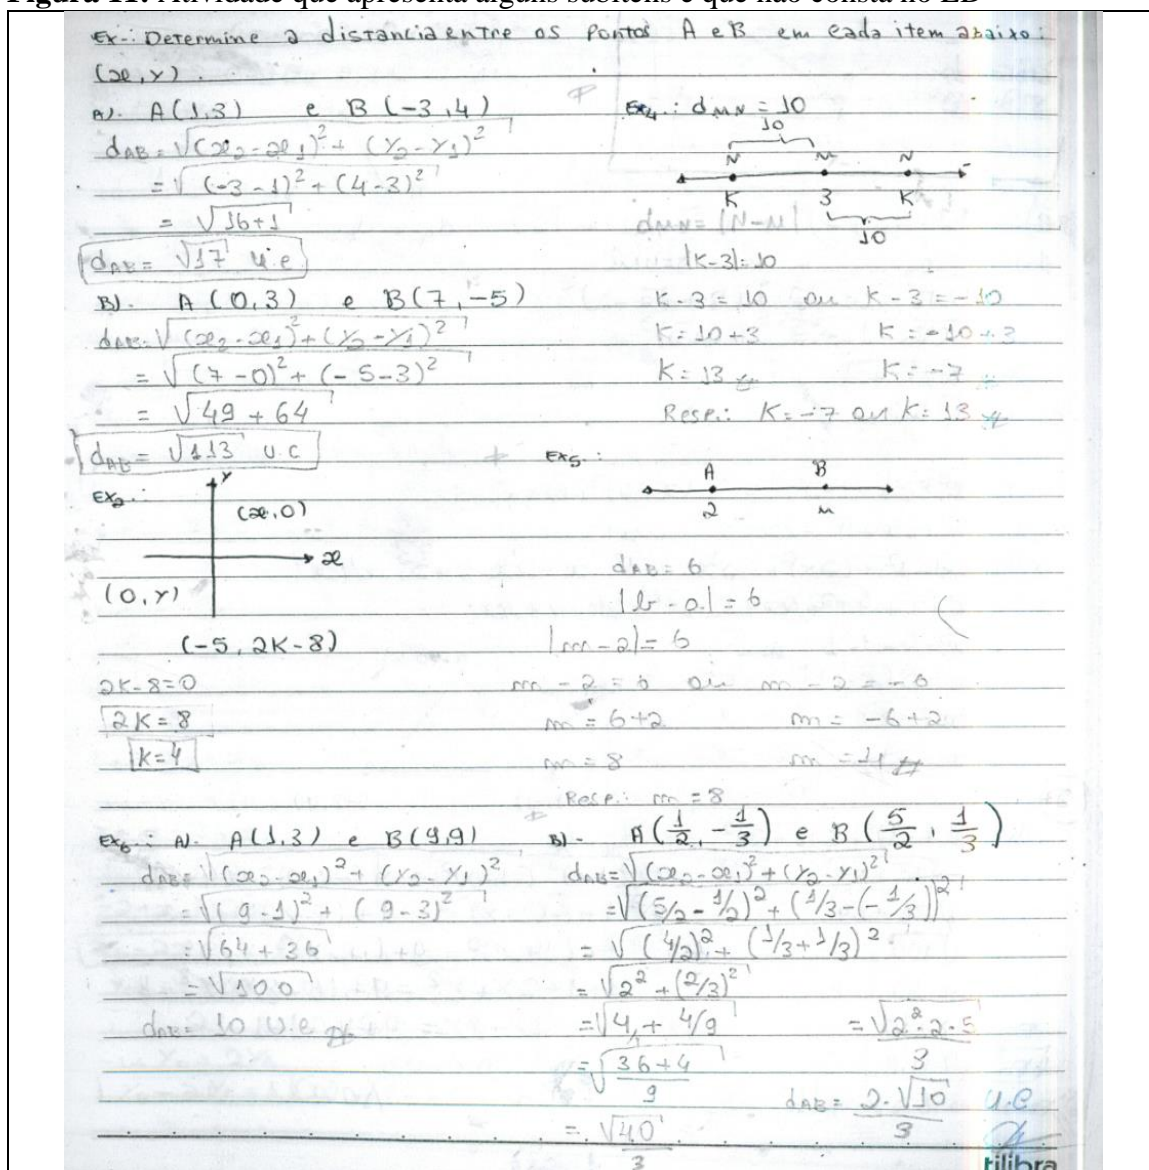 Figura 11: Atividade que apresenta alguns subitens e que não consta no LD
Ex-: Determine a distancia entre os pontos A e B em cada item abaixo:
(x,y).
A). A(1,3) e B(-3,4)
dAB = √(x2-x1)²+(y2-y1)²
= √(-3-1)²+(4-3)²
= √16+1
dAB = √17 u.e
B). A(0,3) e B(7,-5)
dAB = √(x2-x1)²+(y2-y1)²
= √(7-0)²+(-5-3)²
= √49+64
dAB = √113 u.c
Ex2.:
y
(x,0)
x
(0,y)
(-5, 2K-8)
2K-8=0
2K=8
k=4
Ex4.: dMN = 10
10
N M N
K 3 K
10
dMN = |N-M|
|K-3|=10
K-3=10 ou K-3=-10
K=10+3 K=-10+3
K=13 K=-7
Resp.: K=-7 ou K=13
Ex5.:
A B
2 m
dAB=6
|b-a|=6
|m-2|=6
m-2=6 ou m-2=-6
m=6+2 m=-6+2
m=8
Resp.: m=8
Ex6.: A). A(1,3) e B(9,9)
dAB = √(x2-x1)²+(y2-y1)²
= √(9-1)²+(9-3)²
= √64+36
= √100
dAB = 10 u.e
B)- A(1/2, -1/3) e B(5/2, 1/3)
dAB = √(x2-x1)²+(y2-y1)²
= √(5/2-1/2)²+(1/3-(-1/3))²
= √(4/2)²+(1/3+1/3)²
= √2²+(2/3)²
= √4+4/9
= √36+4/9
= √40/3
= √2².2.5/3
dAB = 2.√10/3 u.e
tilibra